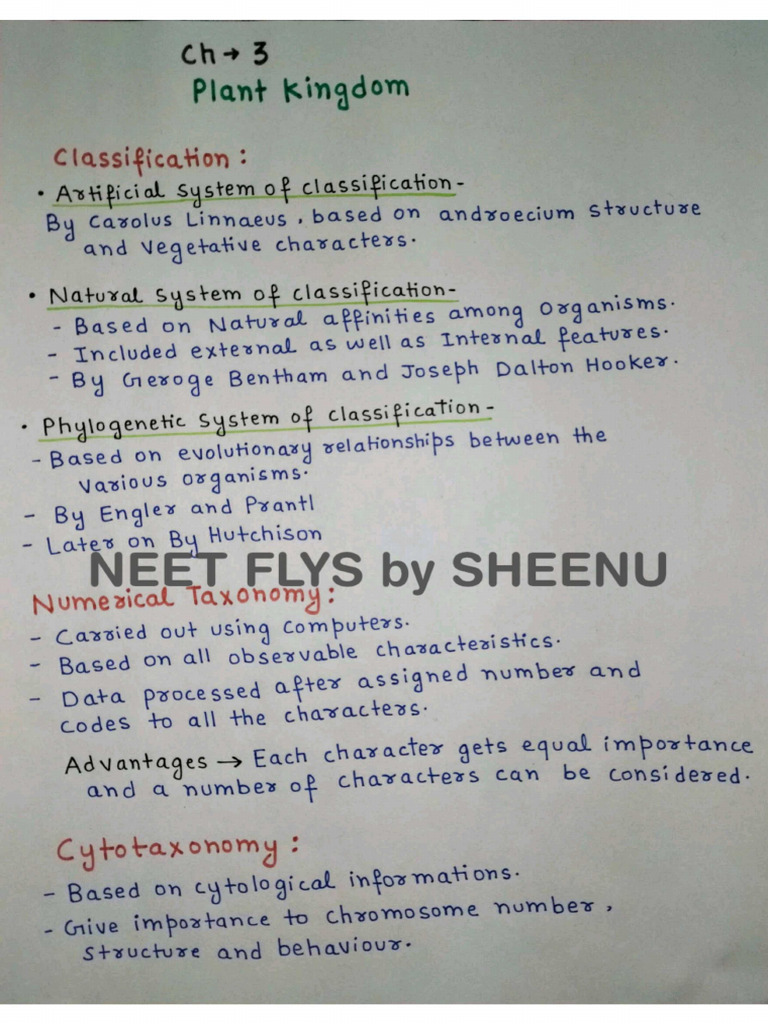 Ch → 3
Plant Kingdom
Classification :
• Artificial System of classification -
By Carolus Linnaeus, based on androecium structure
and Vegetative characters.
• Natural System of classification -
- Based on Natural affinities among Organisms.
- Included external as well as Internal features.
- By Geroge Bentham and Joseph Dalton Hooker.
• Phylogenetic System of classification -
- Based on evolutionary relationships between the
Various organisms.
- By Engler and Prantl
- Later on By Hutchison
NEET FLYS by SHEENU
Numerical Taxonomy :
- Carried out using Computers.
- Based on all observable characteristics.
- Data processed after assigned number and
codes to all the characters.
Advantages → Each character gets equal importance
and a number of characters can be considered.
Cytotaxonomy :
- Based on cytological informations.
- Give importance to chromosome number,
structure and behaviour.